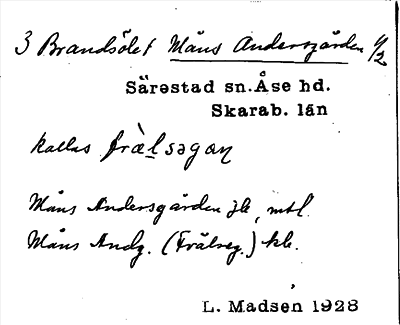 3 Brandsölet Måns Andersgården 1/2
Särestad sn. Åse hd.
Skarab. län
kallas fràlsəgaɳ
Måns Andersgården jb, mtl.
Måns Andg. (Frälseg.) kk.
L. Madsen 1928